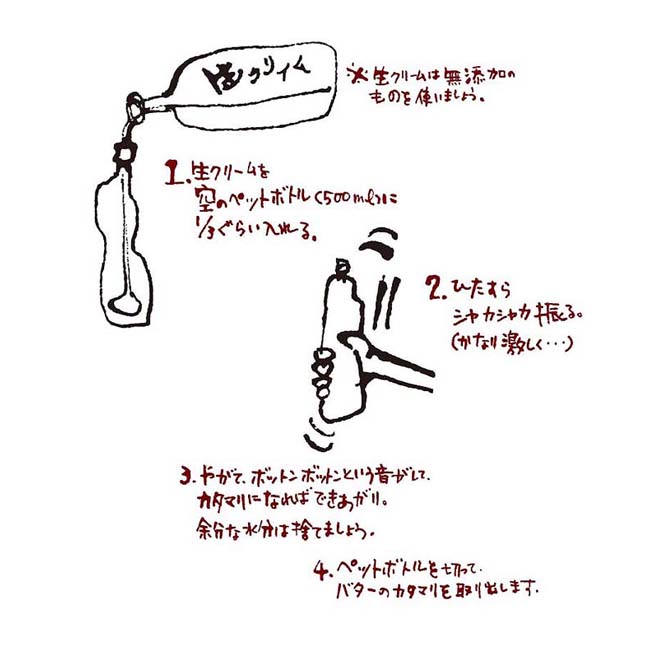 生クリーム
※生クリームは無添加の
ものを使いましょう。
1.生クリームを
空のペットボトル(500ml)に
1/3ぐらい入れる。
2.ひたすら
シャカシャカ振る。
(かなり激しく・・・)
3.やがて、ボットンボットンという音がして、
カタマリになればできあがり。
余分な水分は捨てましょう。
4.ペットボトルを切って、
バターのカタマリを取り出します。